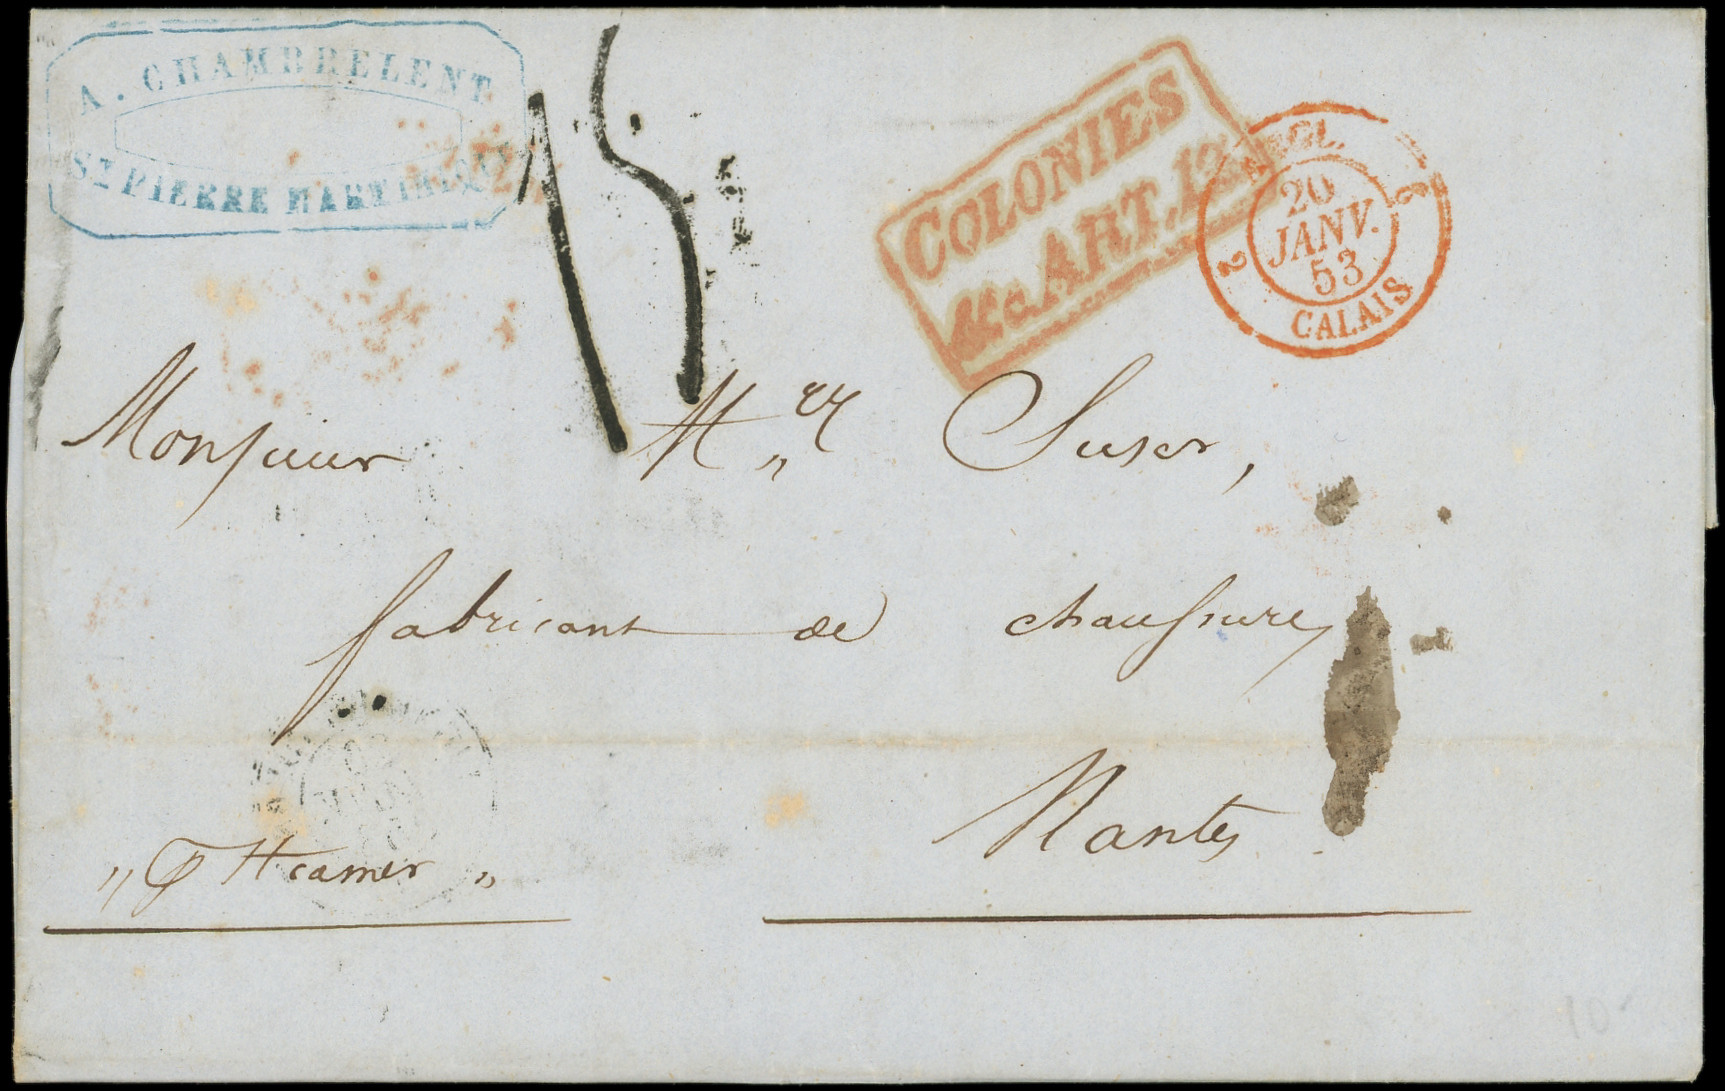 A. CHAMBRELENT
ST PIERRE MARTINIQUE
15
COLONIES
&c. ART. 12
ANGL.
2 20 2
JANV.
53
CALAIS
Monsieur Mer Suser,
fabricant de chaussures
Nantes
„ P Steamer „
10